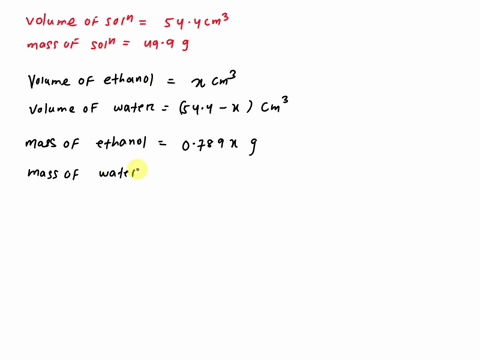 volume of solⁿ = 54.4 cm³
mass of solⁿ = 49.9 g
Volume of ethanol = x cm³
volume of water = (54.4 - x) cm³
mass of ethanol = 0.789x g
mass of water